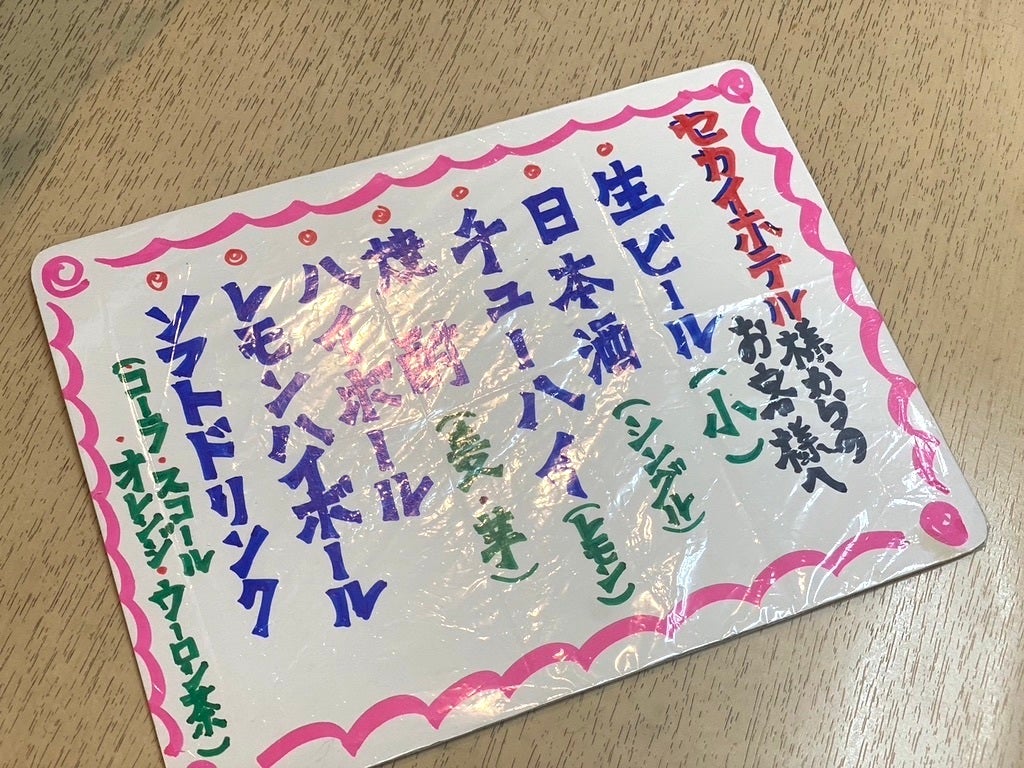 セカイホテル様からの
お客様へ
生ビール(小)
日本酒(シングル)
チューハイ(レモン)
焼酎(麦・芋)
ハイボール
レモンハイボール
ソフトドリンク
(コーラ・スコール・ウーロン茶)
・オレンジ